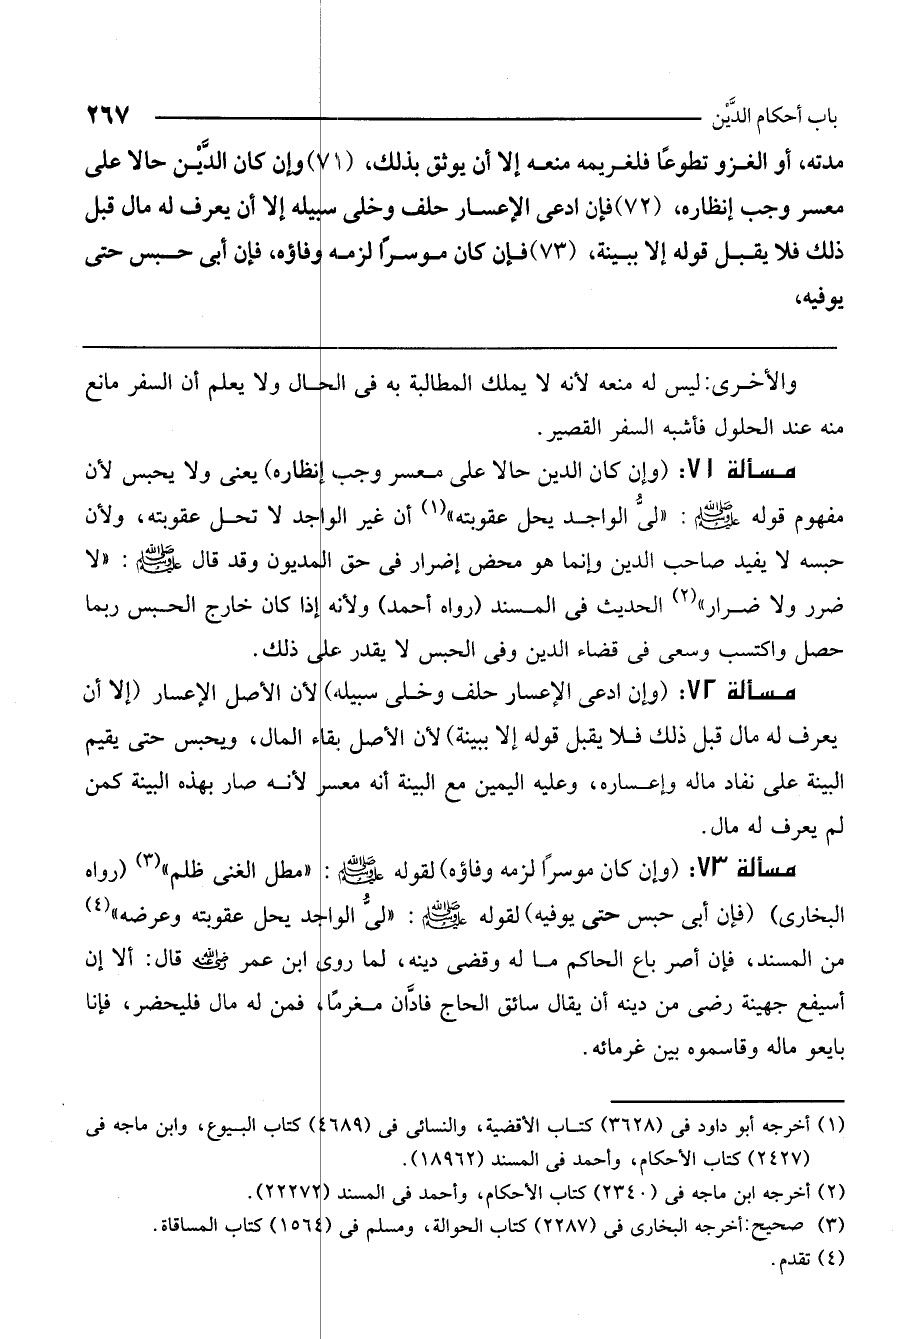 باب أحكام الدَّيْن ٢٦٧
مدته، أو الغزو تطوعًا فلغريمه منعه إلا أن يوثق بذلك، (٧١)وإن كان الدَّيْن حالا على
معسر وجب إنظاره، (٧٢)فإن ادعى الإعسار حلف وخلى سبيله إلا أن يعرف له مال قبل
ذلك فلا يقبل قوله إلا ببينة، (٧٣)فإن كان موسرًا لزمه وفاؤه، فإن أبى حبس حتى
يوفيه،
والأخرى: ليس له منعه لأنه لا يملك المطالبة به فى الحال ولا يعلم أن السفر مانع
منه عند الحلول فأشبه السفر القصير.
مسألة ٧١: (وإن كان الدين حالا على معسر وجب إنظاره) يعنى ولا يحبس لأن
مفهوم قوله ﷺ: «لىُّ الواجد يحل عقوبته»(١) أن غير الواجد لا تحل عقوبته، ولأن
حبسه لا يفيد صاحب الدين وإنما هو محض إضرار فى حق المديون وقد قال ﷺ: «لا
ضرر ولا ضرار»(٢) الحديث فى المسند (رواه أحمد) ولأنه إذا كان خارج الحبس ربما
حصل واكتسب وسعى فى قضاء الدين وفى الحبس لا يقدر على ذلك.
مسألة ٧٢: (وإن ادعى الإعسار حلف وخلى سبيله) لأن الأصل الإعسار (إلا أن
يعرف له مال قبل ذلك فلا يقبل قوله إلا ببينة) لأن الأصل بقاء المال، ويحبس حتى يقيم
البينة على نفاد ماله وإعساره، وعليه اليمين مع البينة أنه معسر لأنه صار بهذه البينة كمن
لم يعرف له مال.
مسألة ٧٣: (وإن كان موسرًا لزمه وفاؤه) لقوله ﷺ: «مطل الغنى ظلم»(٣) (رواه
البخارى) (فإن أبى حبس حتى يوفيه) لقوله ﷺ: «لىُّ الواجد يحل عقوبته وعرضه»(٤)
من المسند، فإن أصر باع الحاكم ما له وقضى دينه، لما روى ابن عمر رضي الله عنه قال: ألا إن
أسيفع جهينة رضى من دينه أن يقال سائق الحاج فادَّان مغرمًا، فمن له مال فليحضر، فإنا
بايعو ماله وقاسموه بين غرمائه.
(١) أخرجه أبو داود فى (٣٦٢٨) كتاب الأقضية، والنسائى فى (٤٦٨٩) كتاب البيوع، وابن ماجه فى
(٢٤٢٧) كتاب الأحكام، وأحمد فى المسند (١٨٩٦٢).
(٢) أخرجه ابن ماجه فى (٢٣٤٠) كتاب الأحكام، وأحمد فى المسند (٢٢٢٧٢).
(٣) صحيح: أخرجه البخارى فى (٢٢٨٧) كتاب الحوالة، ومسلم فى (١٥٦٤) كتاب المساقاة.
(٤) تقدم.